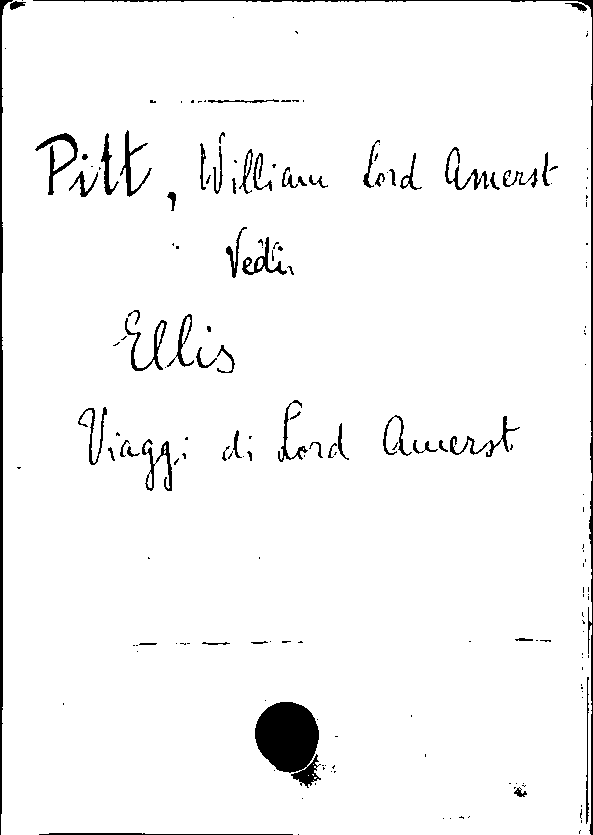 Pitt, William Lord Amerst
Vedi
Ellis
Viaggi di Lord Amerst